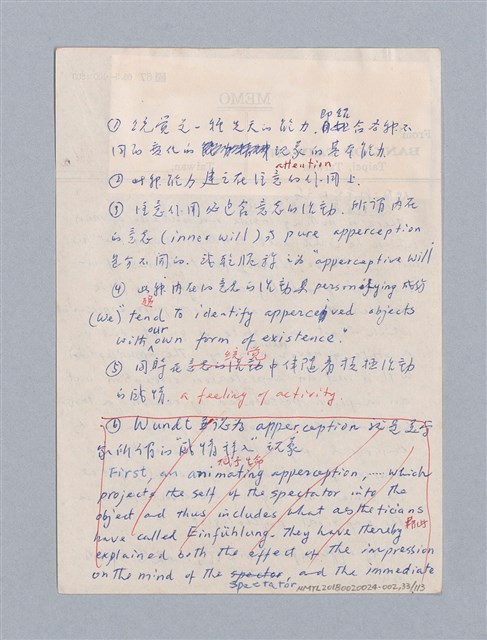 ① 統覺是一種先天的能力, 即結合各種不
同的意化的 現象的基本能力
attention
② 此種能力建立在注意的作用上.
③ 注意作用必包含意志的活動. 所謂內在
的意志 (inner will) 與 pure apperception
是分不開的. 或乾脆称為 "apperceptive will"
④ 此種內在的意志的活動具 personifying 成分
(We) "tend to identify apperceived objects
with our own form of existence."
⑤ 同時在 統覺 中伴隨着積極活動
的感情. a feeling of activity.
⑥ Wundt 認為 apperception 就是美学
家所谓的 "感情移入" 現象
First, an animating apperception, ..... which
projects the self of the spectator into the
object and thus includes what aestheticians
have called Einfühlung. They have thereby
explained both the effect of the impression
on the mind of the spectator, and the immediate
NMTL20180020024-002,33/113
MEMO